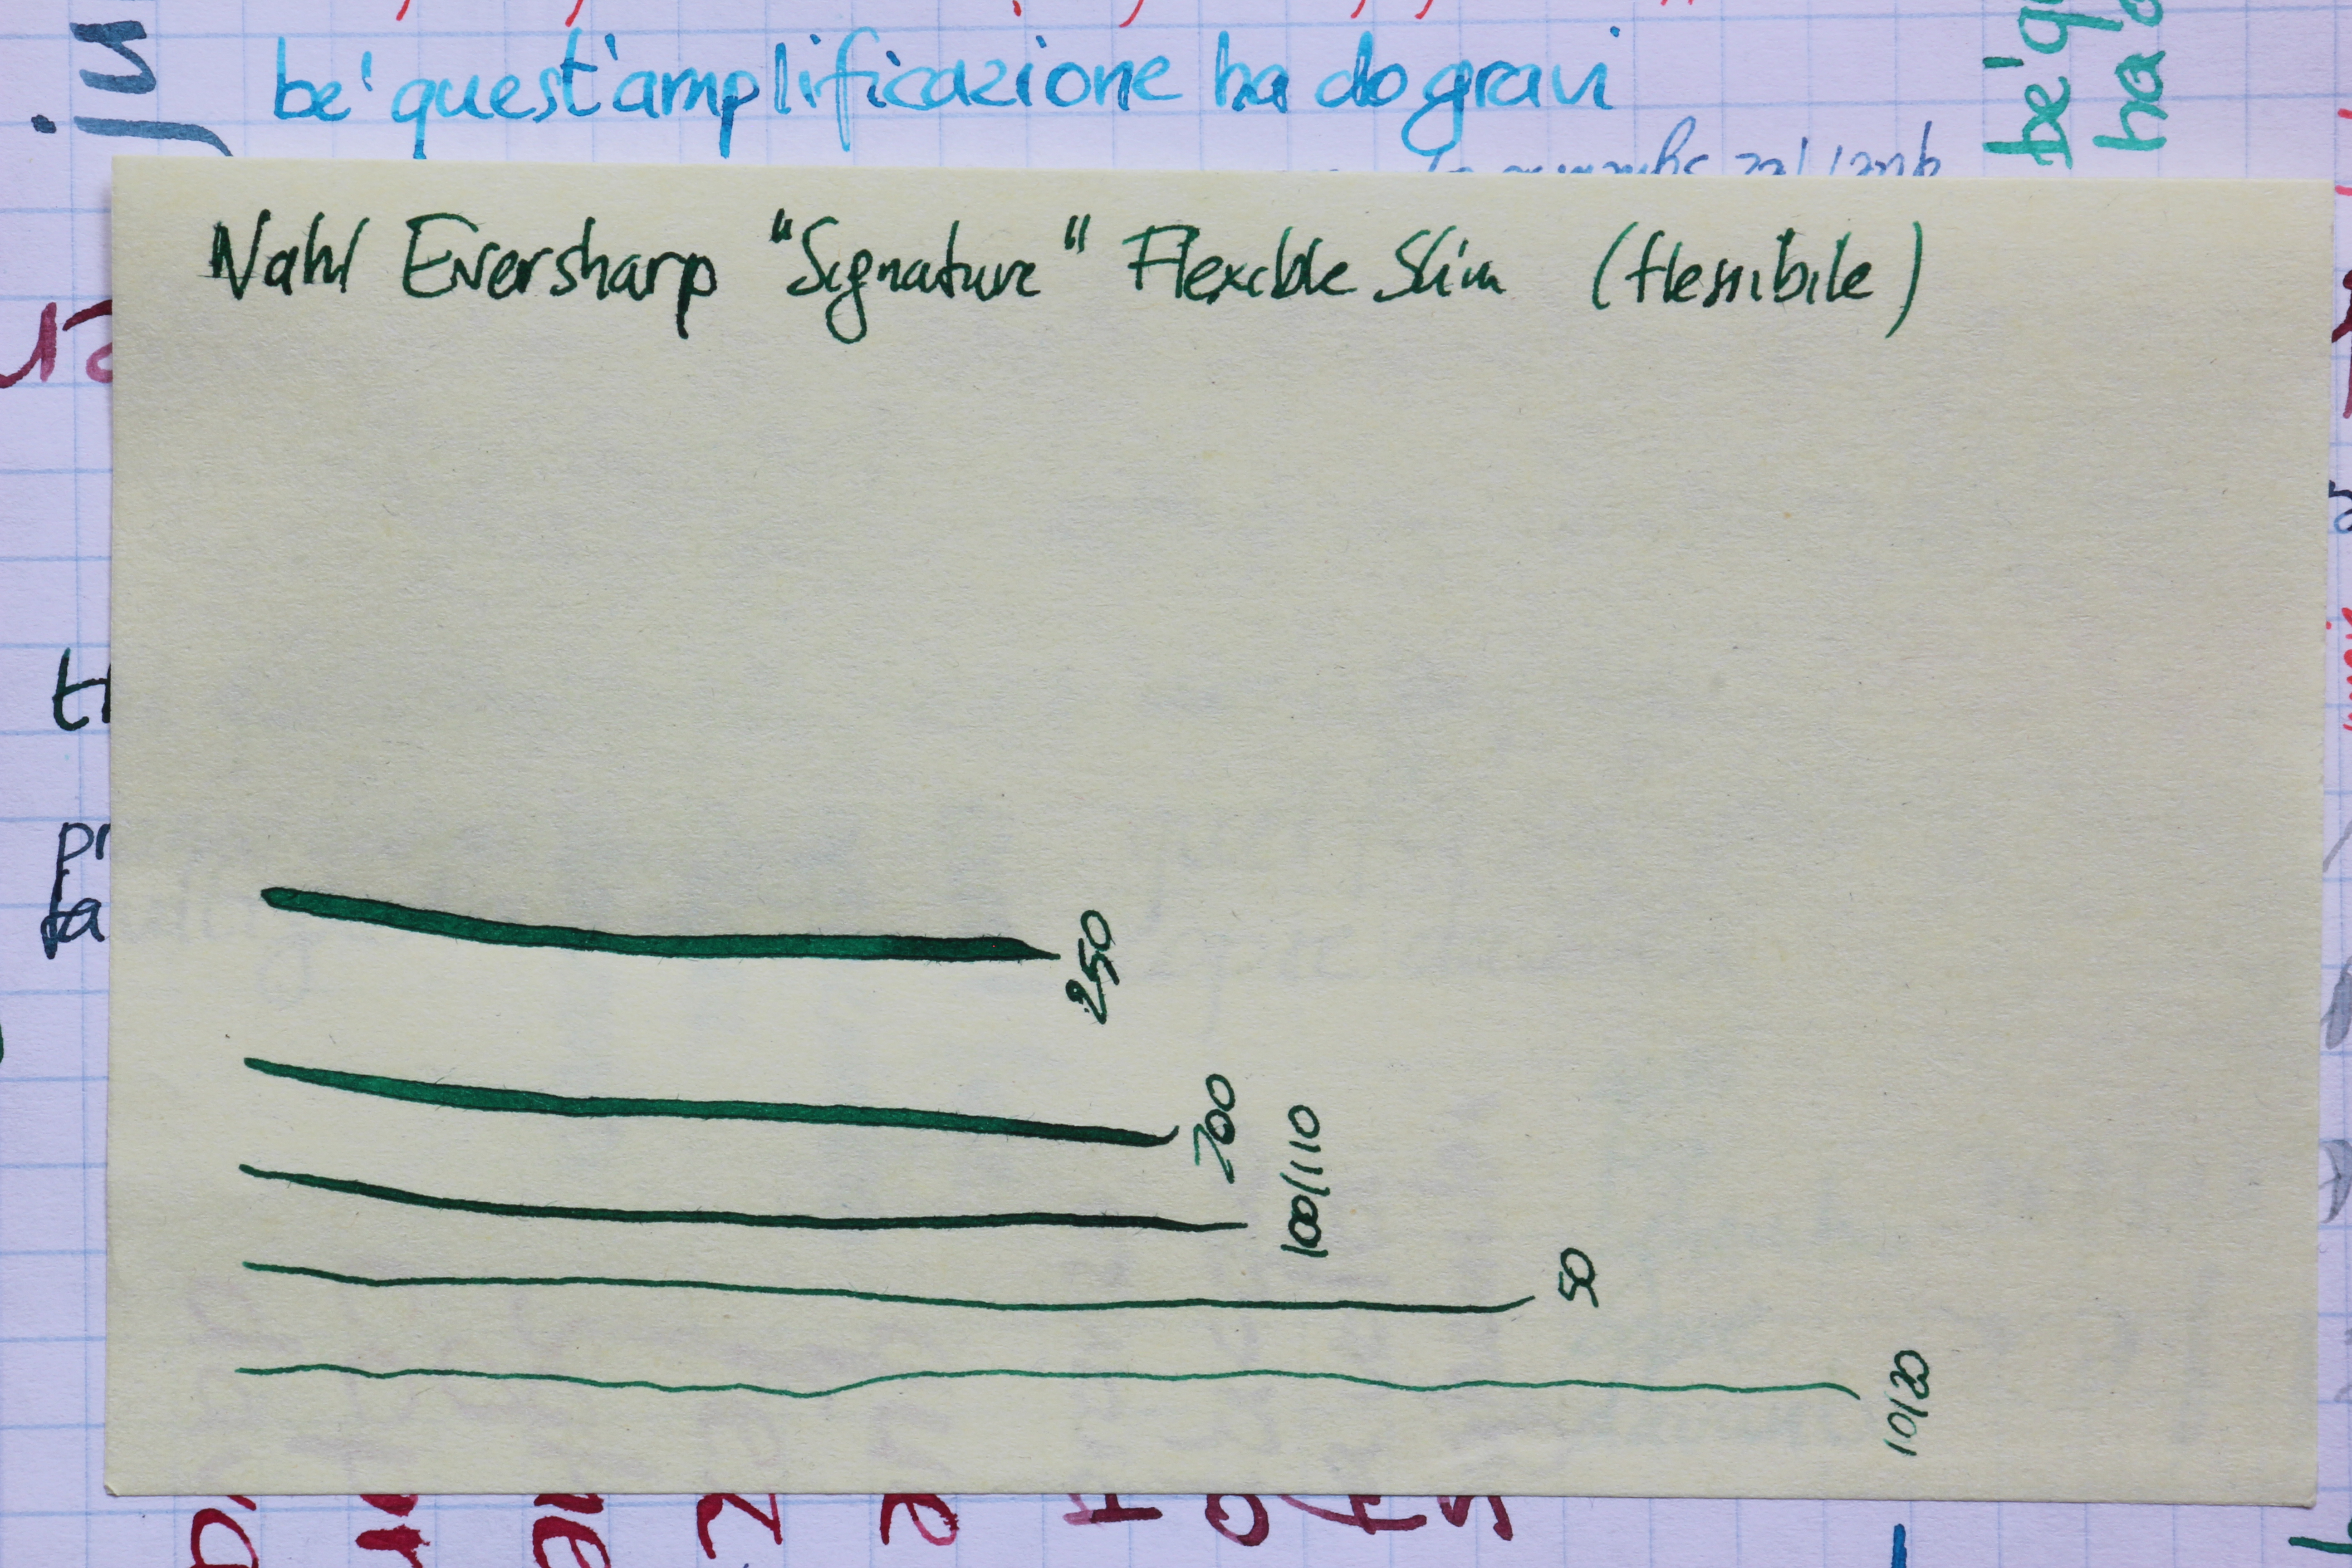 be' quest'amplificazione ha do gravi
be' qu
ha d
Wahl Eversharp "Signature" Flexible Slim (flessibile)
250
200
100/110
50
10/20
th
pr
fa